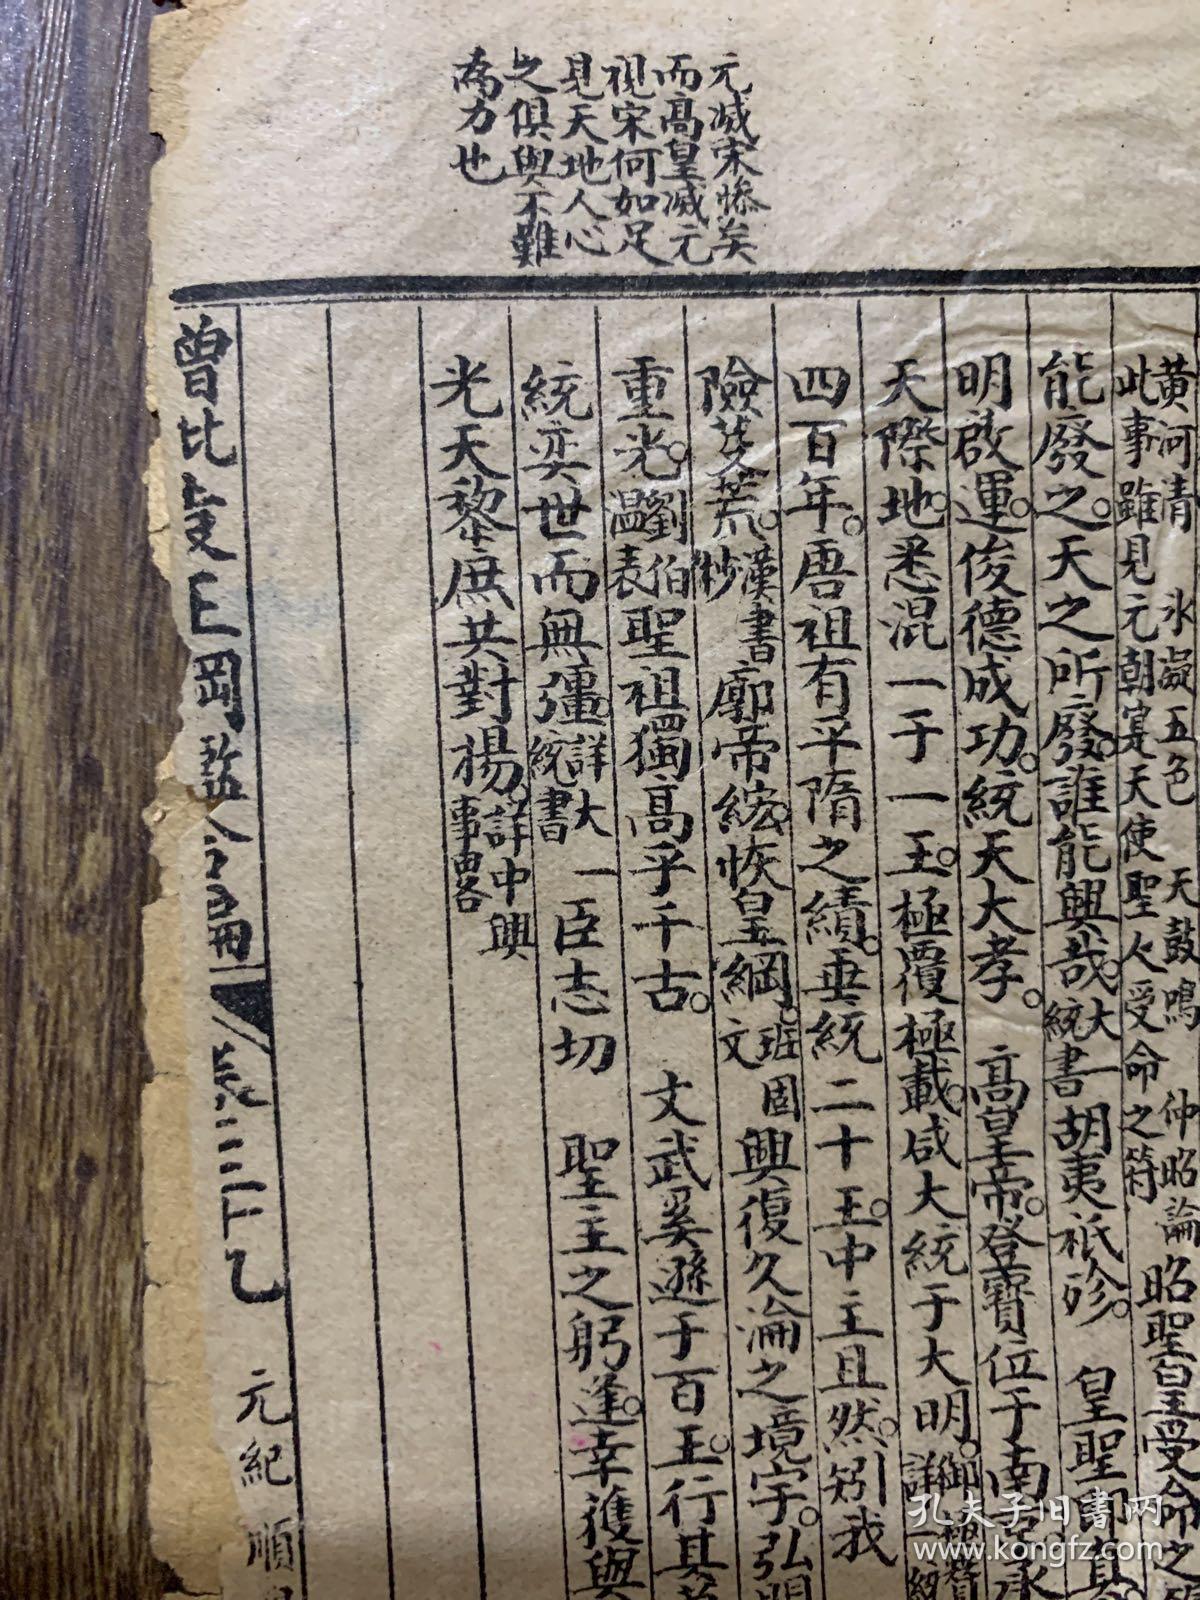 元滅宋慘矣
而高皇滅元
視宋何如足
見天地人心
之俱與不難
為力也
黄河清 永凝五色 天鼓鳴 仲昭論
此事雖見元朝寔天使聖人受命之符
昭聖皇受命之
能廢之天之所廢誰能興哉大統書胡夷祇殄 皇聖即真
明啟運俊德成功統天大孝 高皇帝登寶位于南
天際地悉混一于一王極覆極載咸大統于大明御
四百年唐祖有平隋之績垂統二十王中主且然矧我
險芟荒漢書廓帝紘恢皇綱班固文興復久淪之境宇弘
重光劉伯温表聖祖獨高乎千古 文武奚遜于百王行其
統奕世而無彊詳大統書一臣志切 聖主之躬逢幸獲與
光天黎庶共對揚詳中興事畧
岡鑑合編
元紀 順
孔夫子旧書网
www.kongfz.com